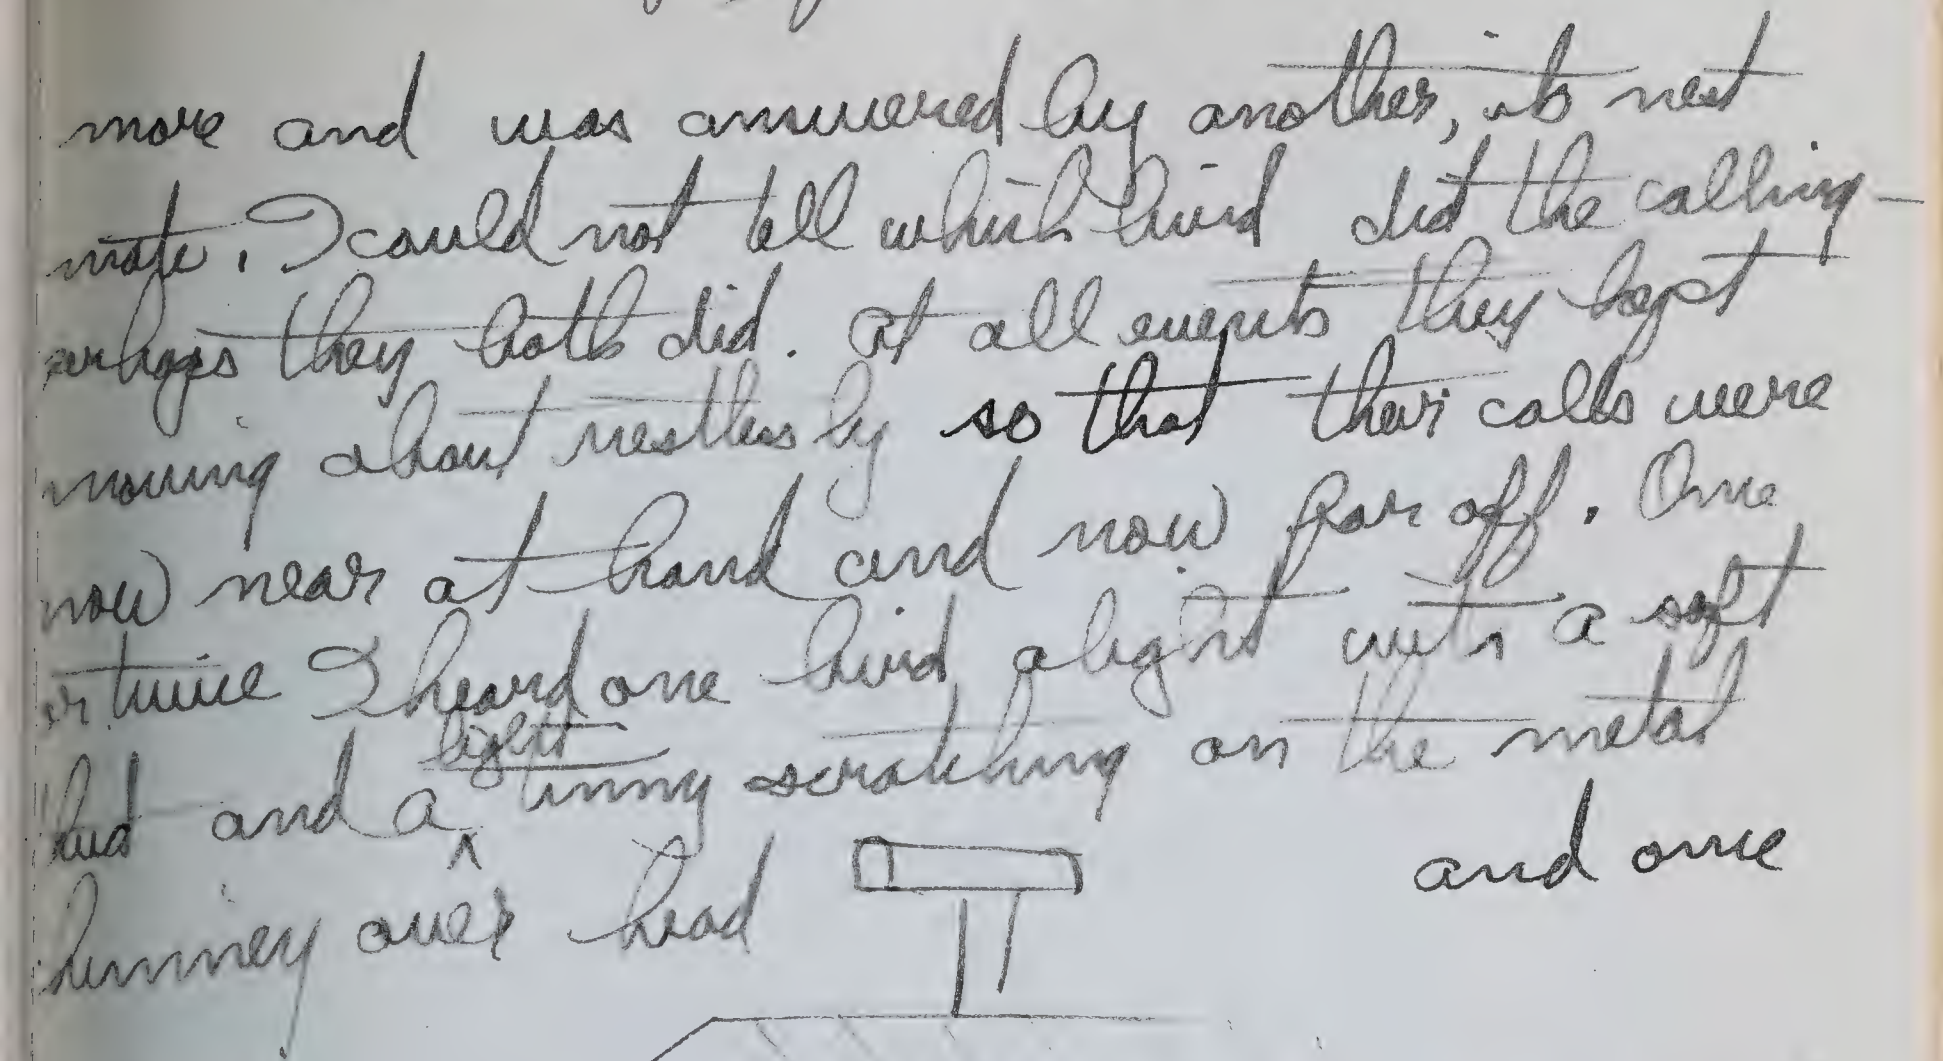 more and was answered by another, its nest
mate. I could not tell which bird did the calling —
perhaps they both did. At all events they kept
moving about restlessly so that their calls were
now near at hand and now far off. Once
or twice I heard one bird alight with a soft
thud and a light tinny scratching on the metal
chimney over head
and once